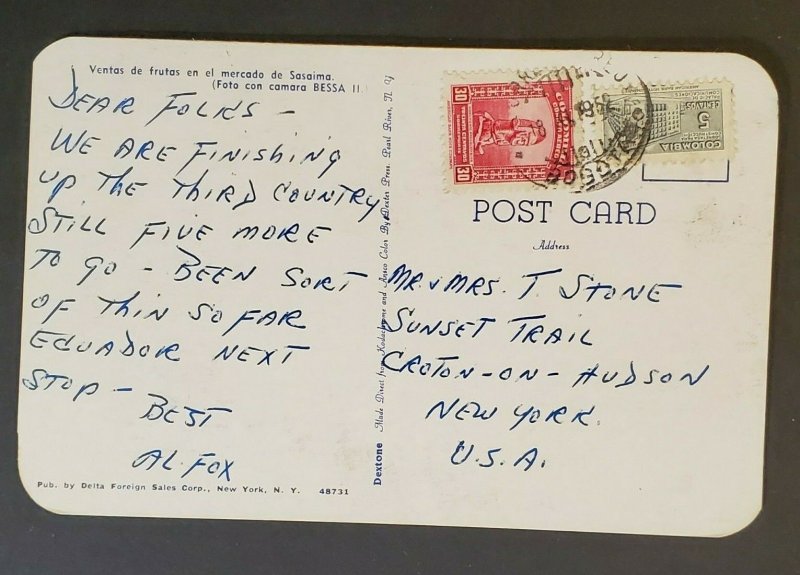 Ventas de frutas en el mercado de Sasaima.
(Foto con camara BESSA II.)
DEAR FOLKS -
WE ARE FINISHING
UP THE THIRD COUNTRY
STILL FIVE MORE
TO GO - BEEN SORT
OF THIN SO FAR
ECUADOR NEXT
STOP -
BEST
AL FOX
Pub. by Delta Foreign Sales Corp., New York, N. Y. 48731
Dextone Made Direct from Kodachrome and Ansco Color By Dexter Press, Pearl River, N. Y.
30 30
30
5
CENTAVOS
COLOMBIA
POST CARD
Address
MR. & MRS. T. STONE
SUNSET TRAIL
CROTON-ON-HUDSON
NEW YORK.
U.S.A.